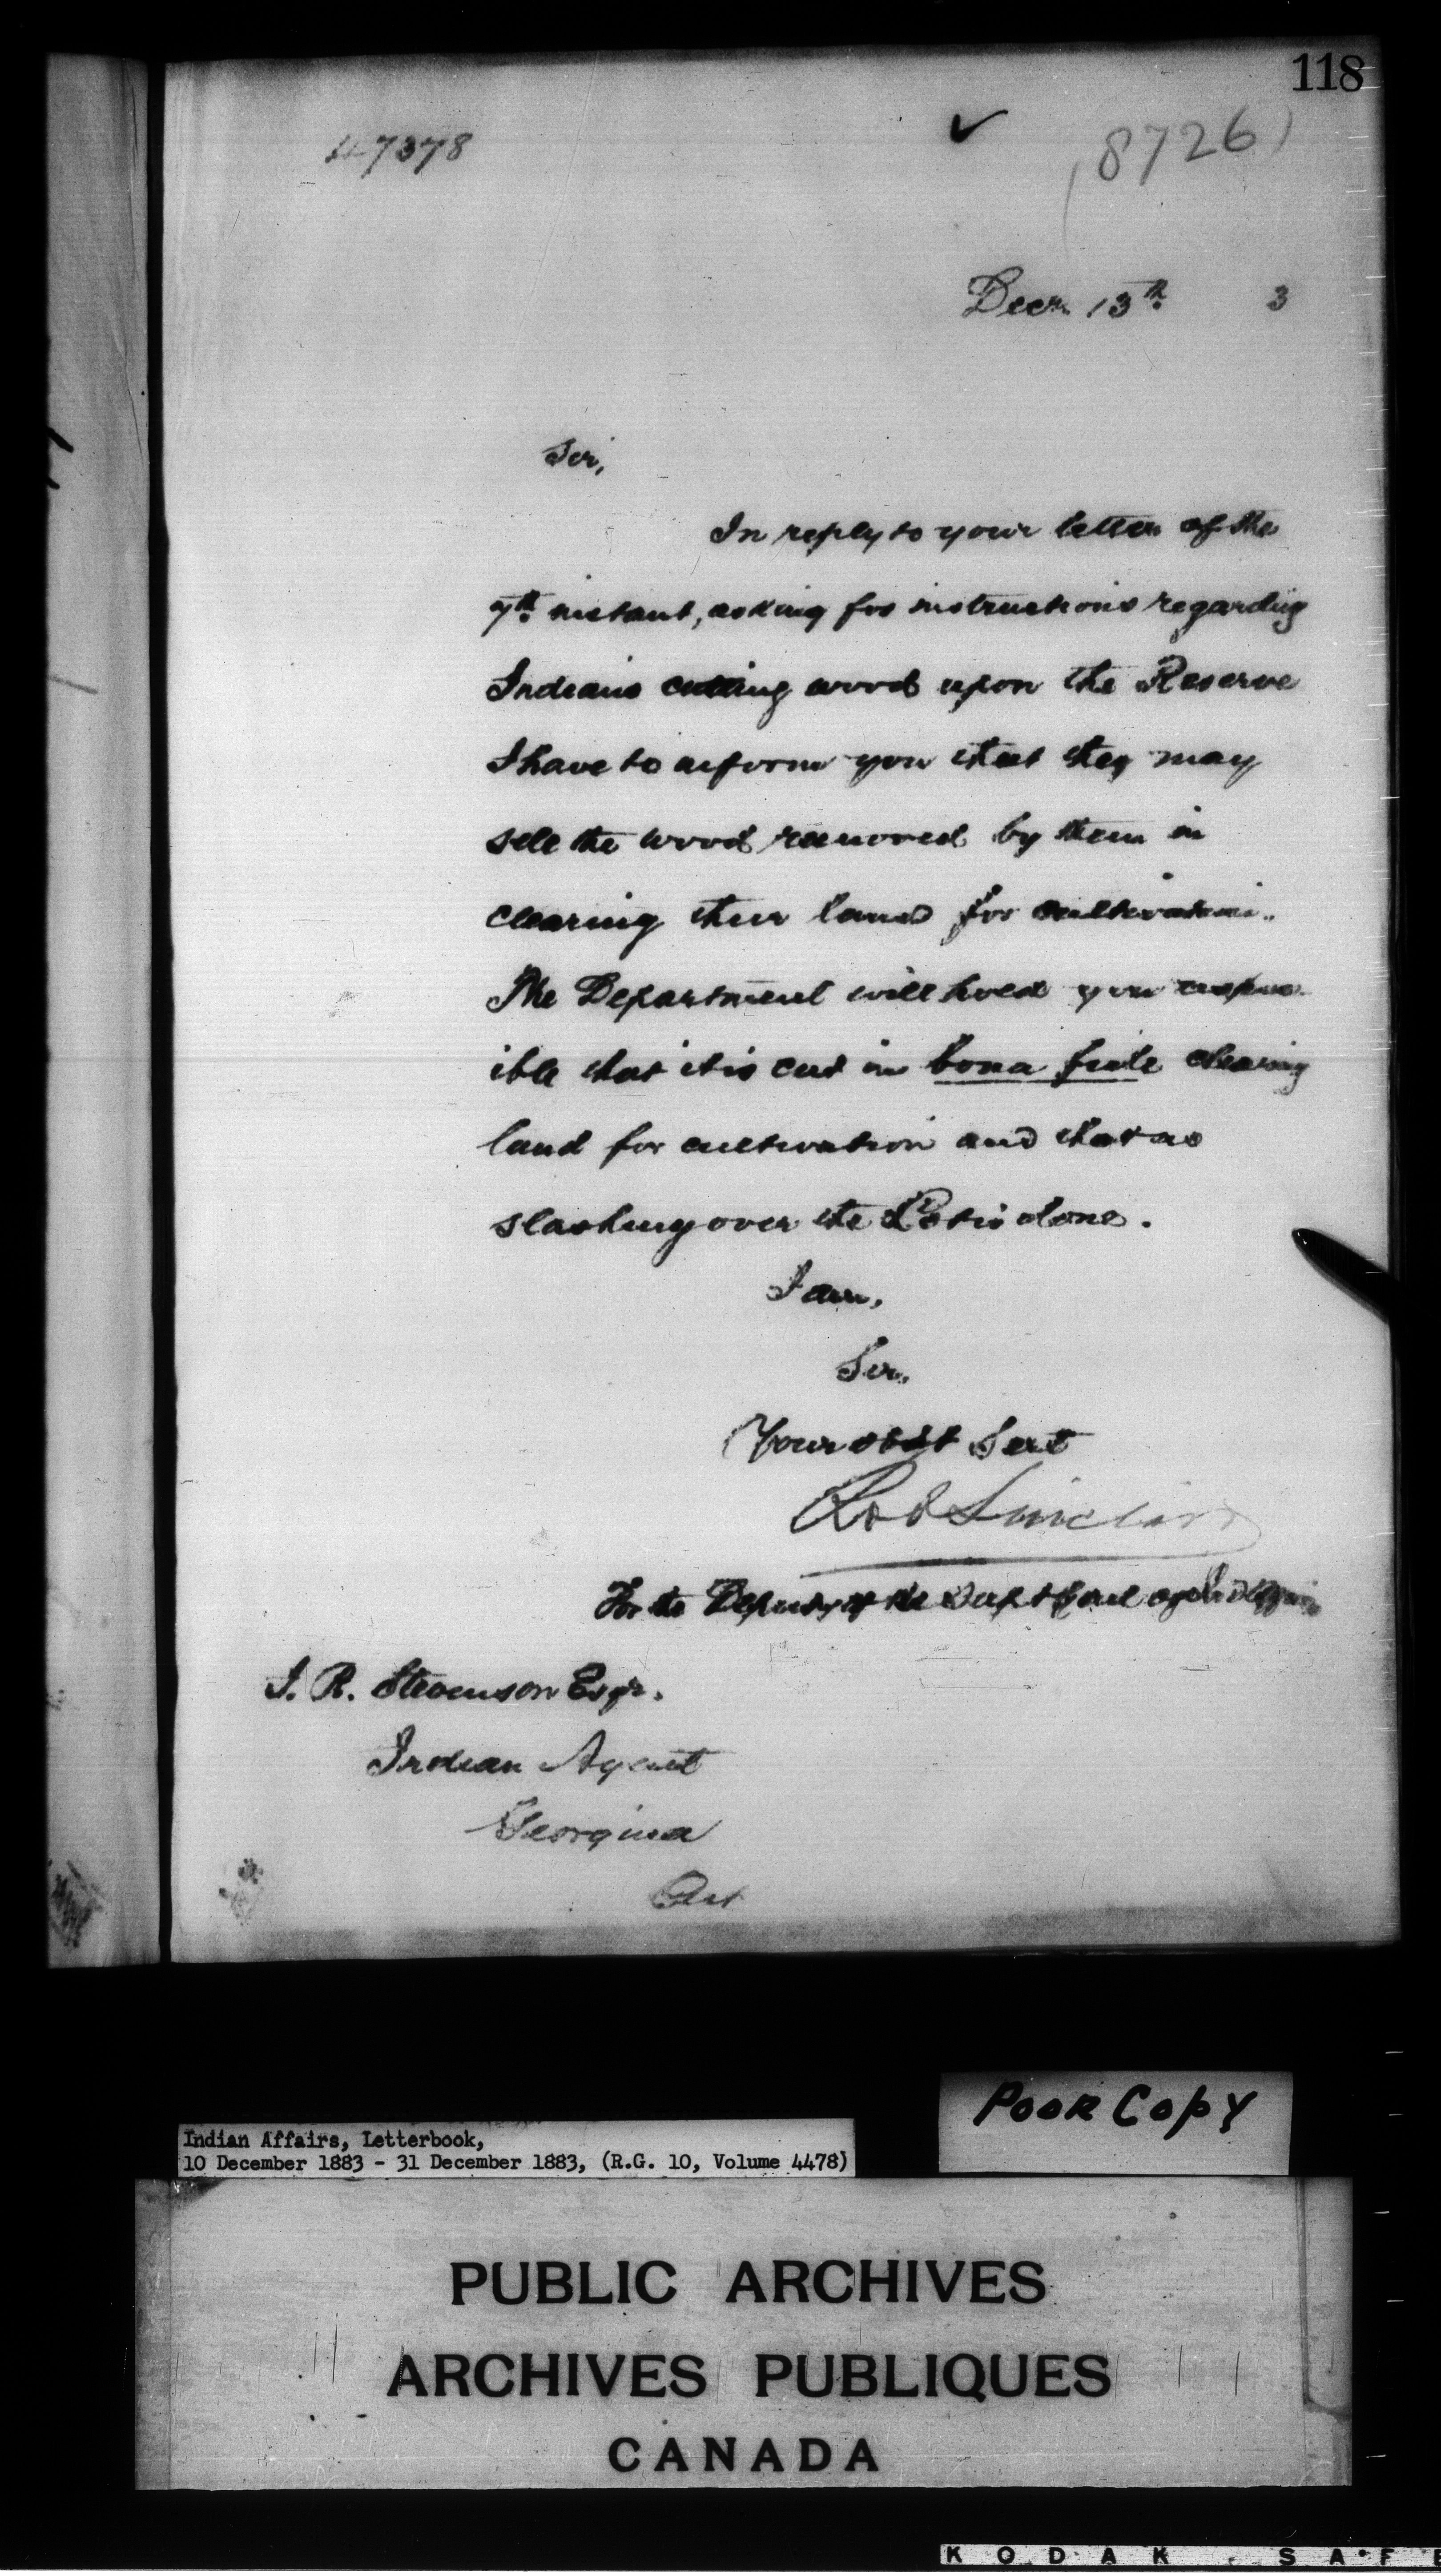 118
47378
(8726)
Decr. 13th 3
Sir,
In reply to your letter of the
7th instant, asking for instructions regarding
Indians cutting wood upon the Reserve
I have to inform you that they may
sell the wood removed by them in
clearing their land for cultivation.
The Department will hold you respons-
ible that it is cut in bona fide clearing
land for cultivation and that no
slashing over the is done.
I am,
Sir,
Your obdt Servt
Rob Sinclair
For the Deputy of the Supt Genl of Ind Affairs
J. R. Stevenson Esqr.
Indian Agent
Georgina
Ont
Poor Copy
Indian Affairs, Letterbook,
10 December 1883 - 31 December 1883, (R.G. 10, Volume 4478)
PUBLIC ARCHIVES
ARCHIVES PUBLIQUES
CANADA
KODAK SAFE